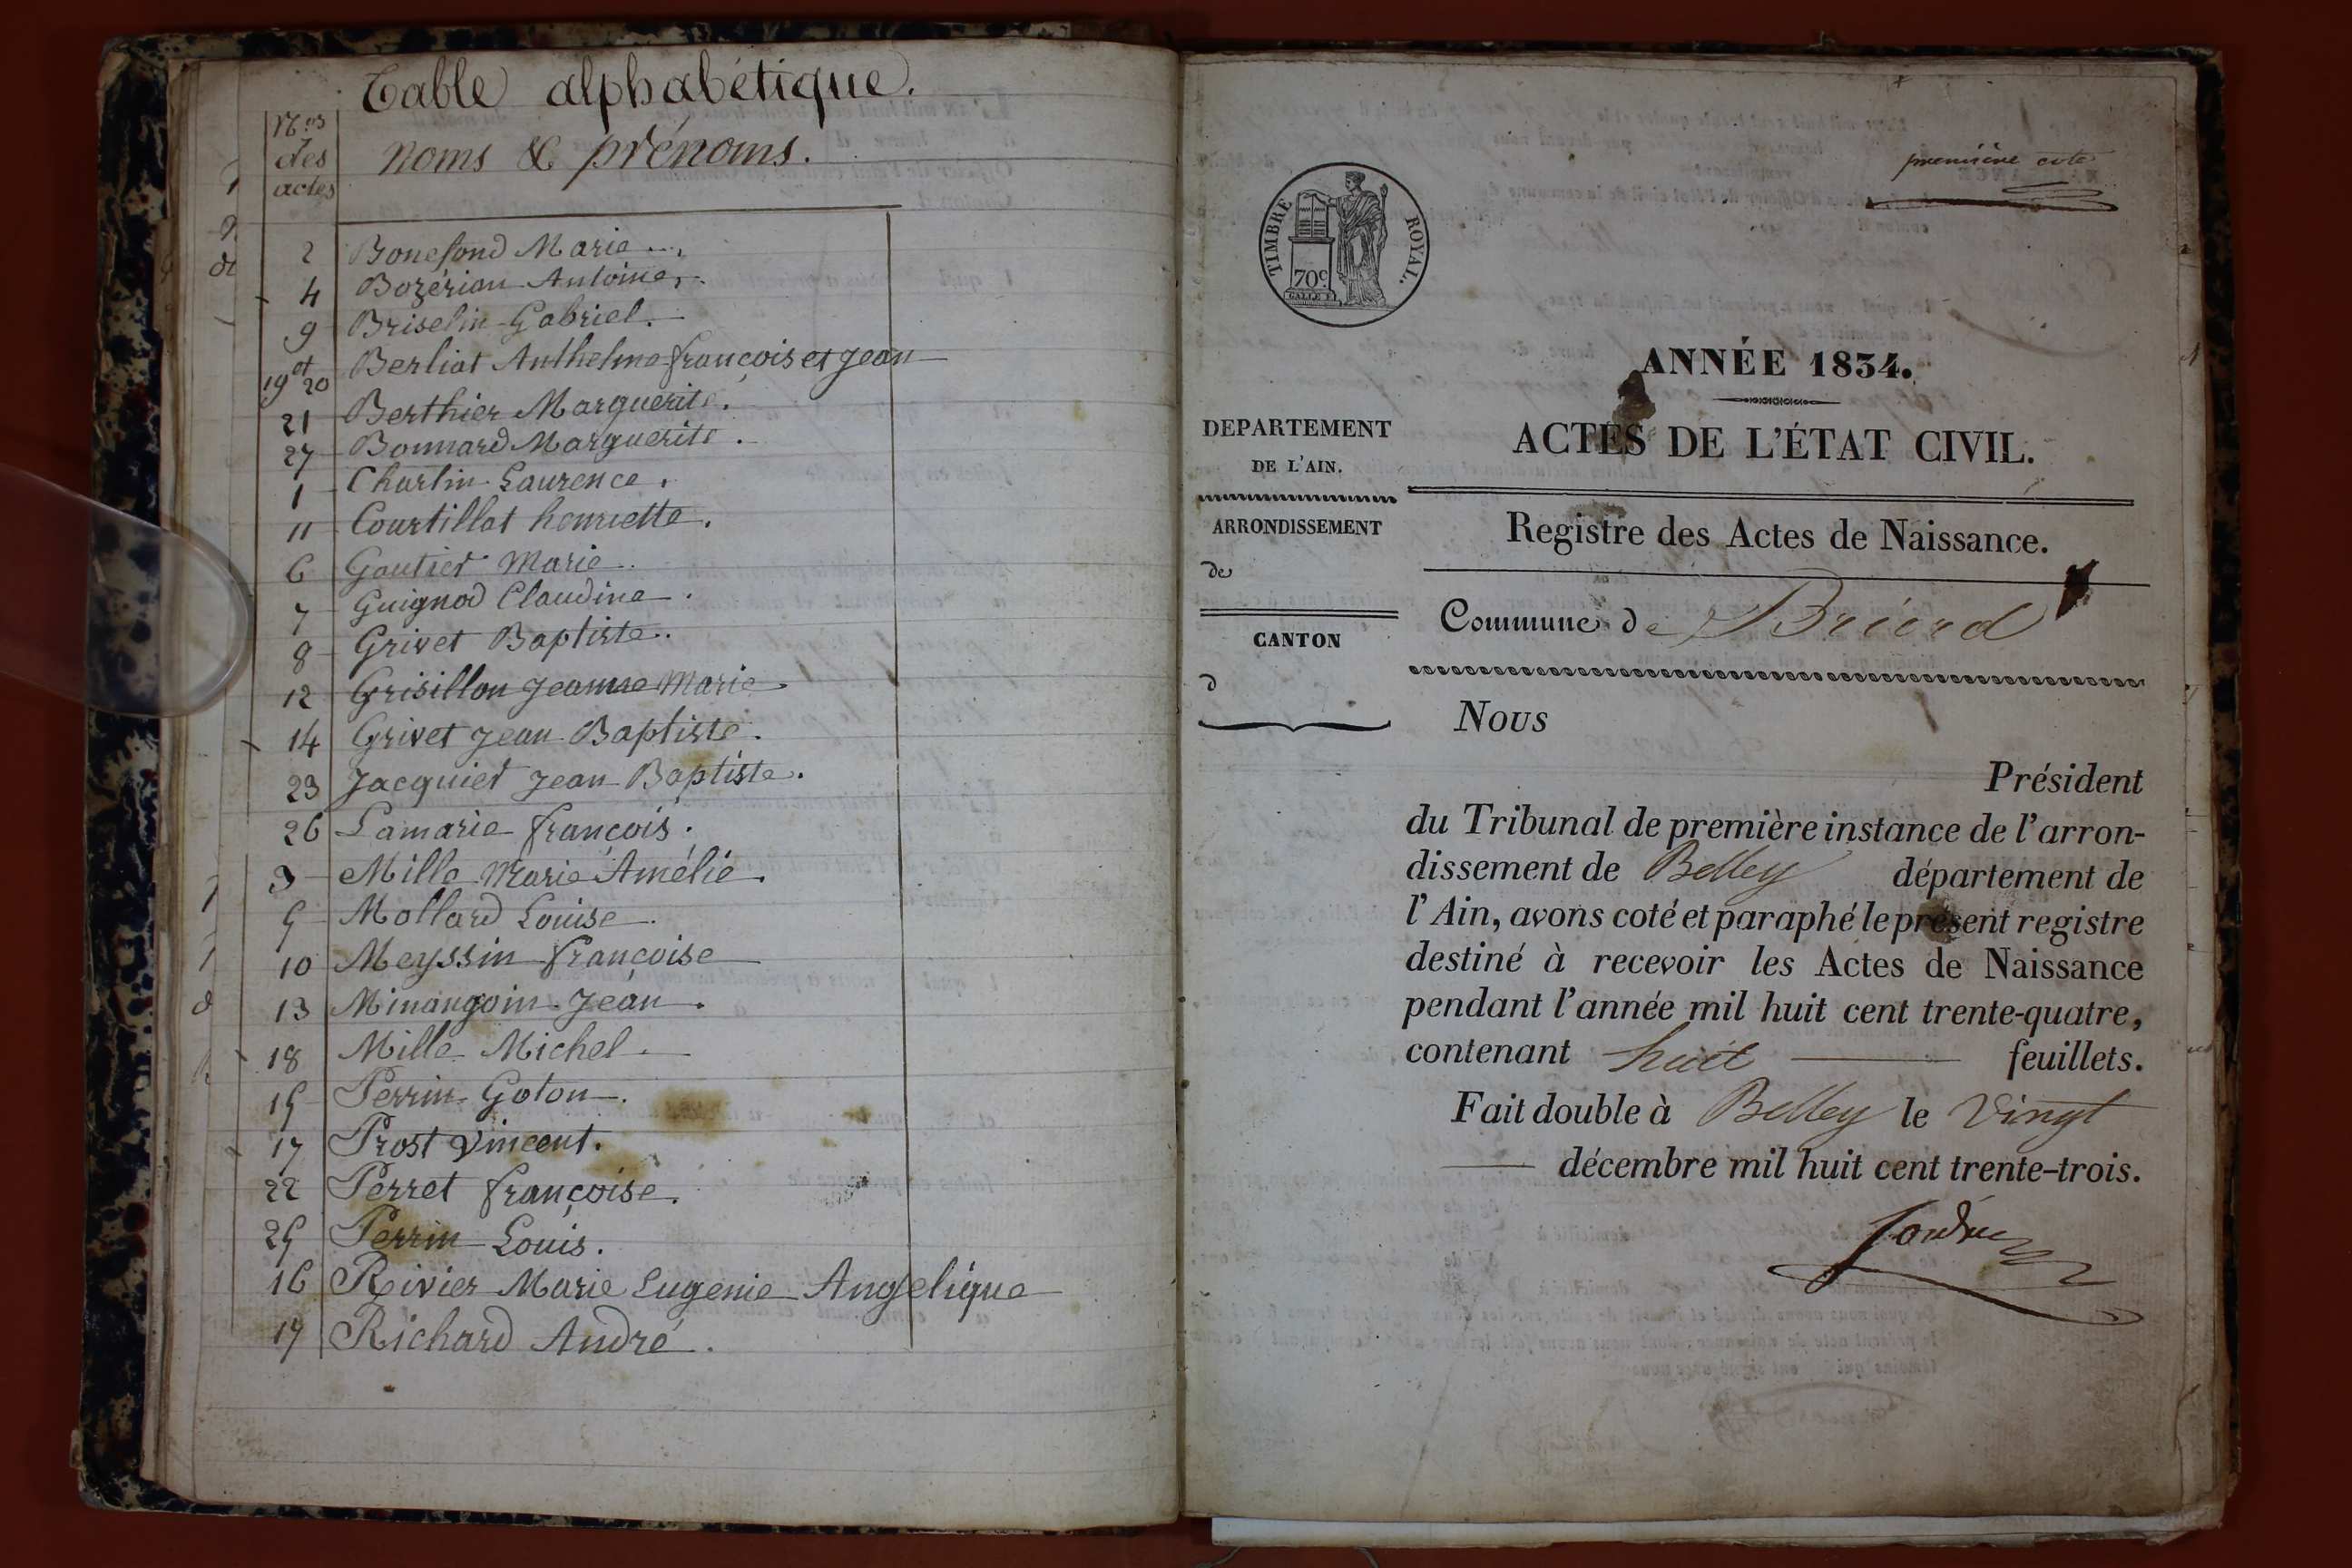 Table alphabétique.
Nos
des
actes
noms & prénoms.
2 Bonefond Marie
4 Bozérian Antoine
9 Briselin Gabriel.
19 et 20 Berliat Anthelme françois et Jean
21 Berthier Marguerite.
27 Bonnard Marguerite.
1 Charlin Laurence.
11 Courtillat henriette.
6 Gautier Marie
7 Guignod Claudine.
8 Grivet Baptiste.
12 Grisillon Jeanne Marie
14 Grivet Jean Baptiste.
23 Jacquier Jean Baptiste.
26 Lamarie françois.
3 Mille Marie Amélie.
5 Mollard Louise.
10 Meyssin françoise
13 Minangoin Jean.
18 Mille Michel
15 Perrin Goton.
17 Prost Vincent.
22 Perret françoise.
25 Perrin Louis.
16 Rivier Marie Eugenie Angelique
Richard André.
première cote
TIMBRE ROYAL.
70c
ANNÉE 1834.
ACTES DE L'ÉTAT CIVIL.
DEPARTEMENT
DE L'AIN.
ARRONDISSEMENT
de
CANTON
d
Registre des Actes de Naissance.
Commune de Briord
Nous
Président
du Tribunal de première instance de l'arron-
dissement de Belley département de
l'Ain, avons coté et paraphé le présent registre
destiné à recevoir les Actes de Naissance
pendant l'année mil huit cent trente-quatre,
contenant huit feuillets.
Fait double à Belley le Vingt
décembre mil huit cent trente-trois.